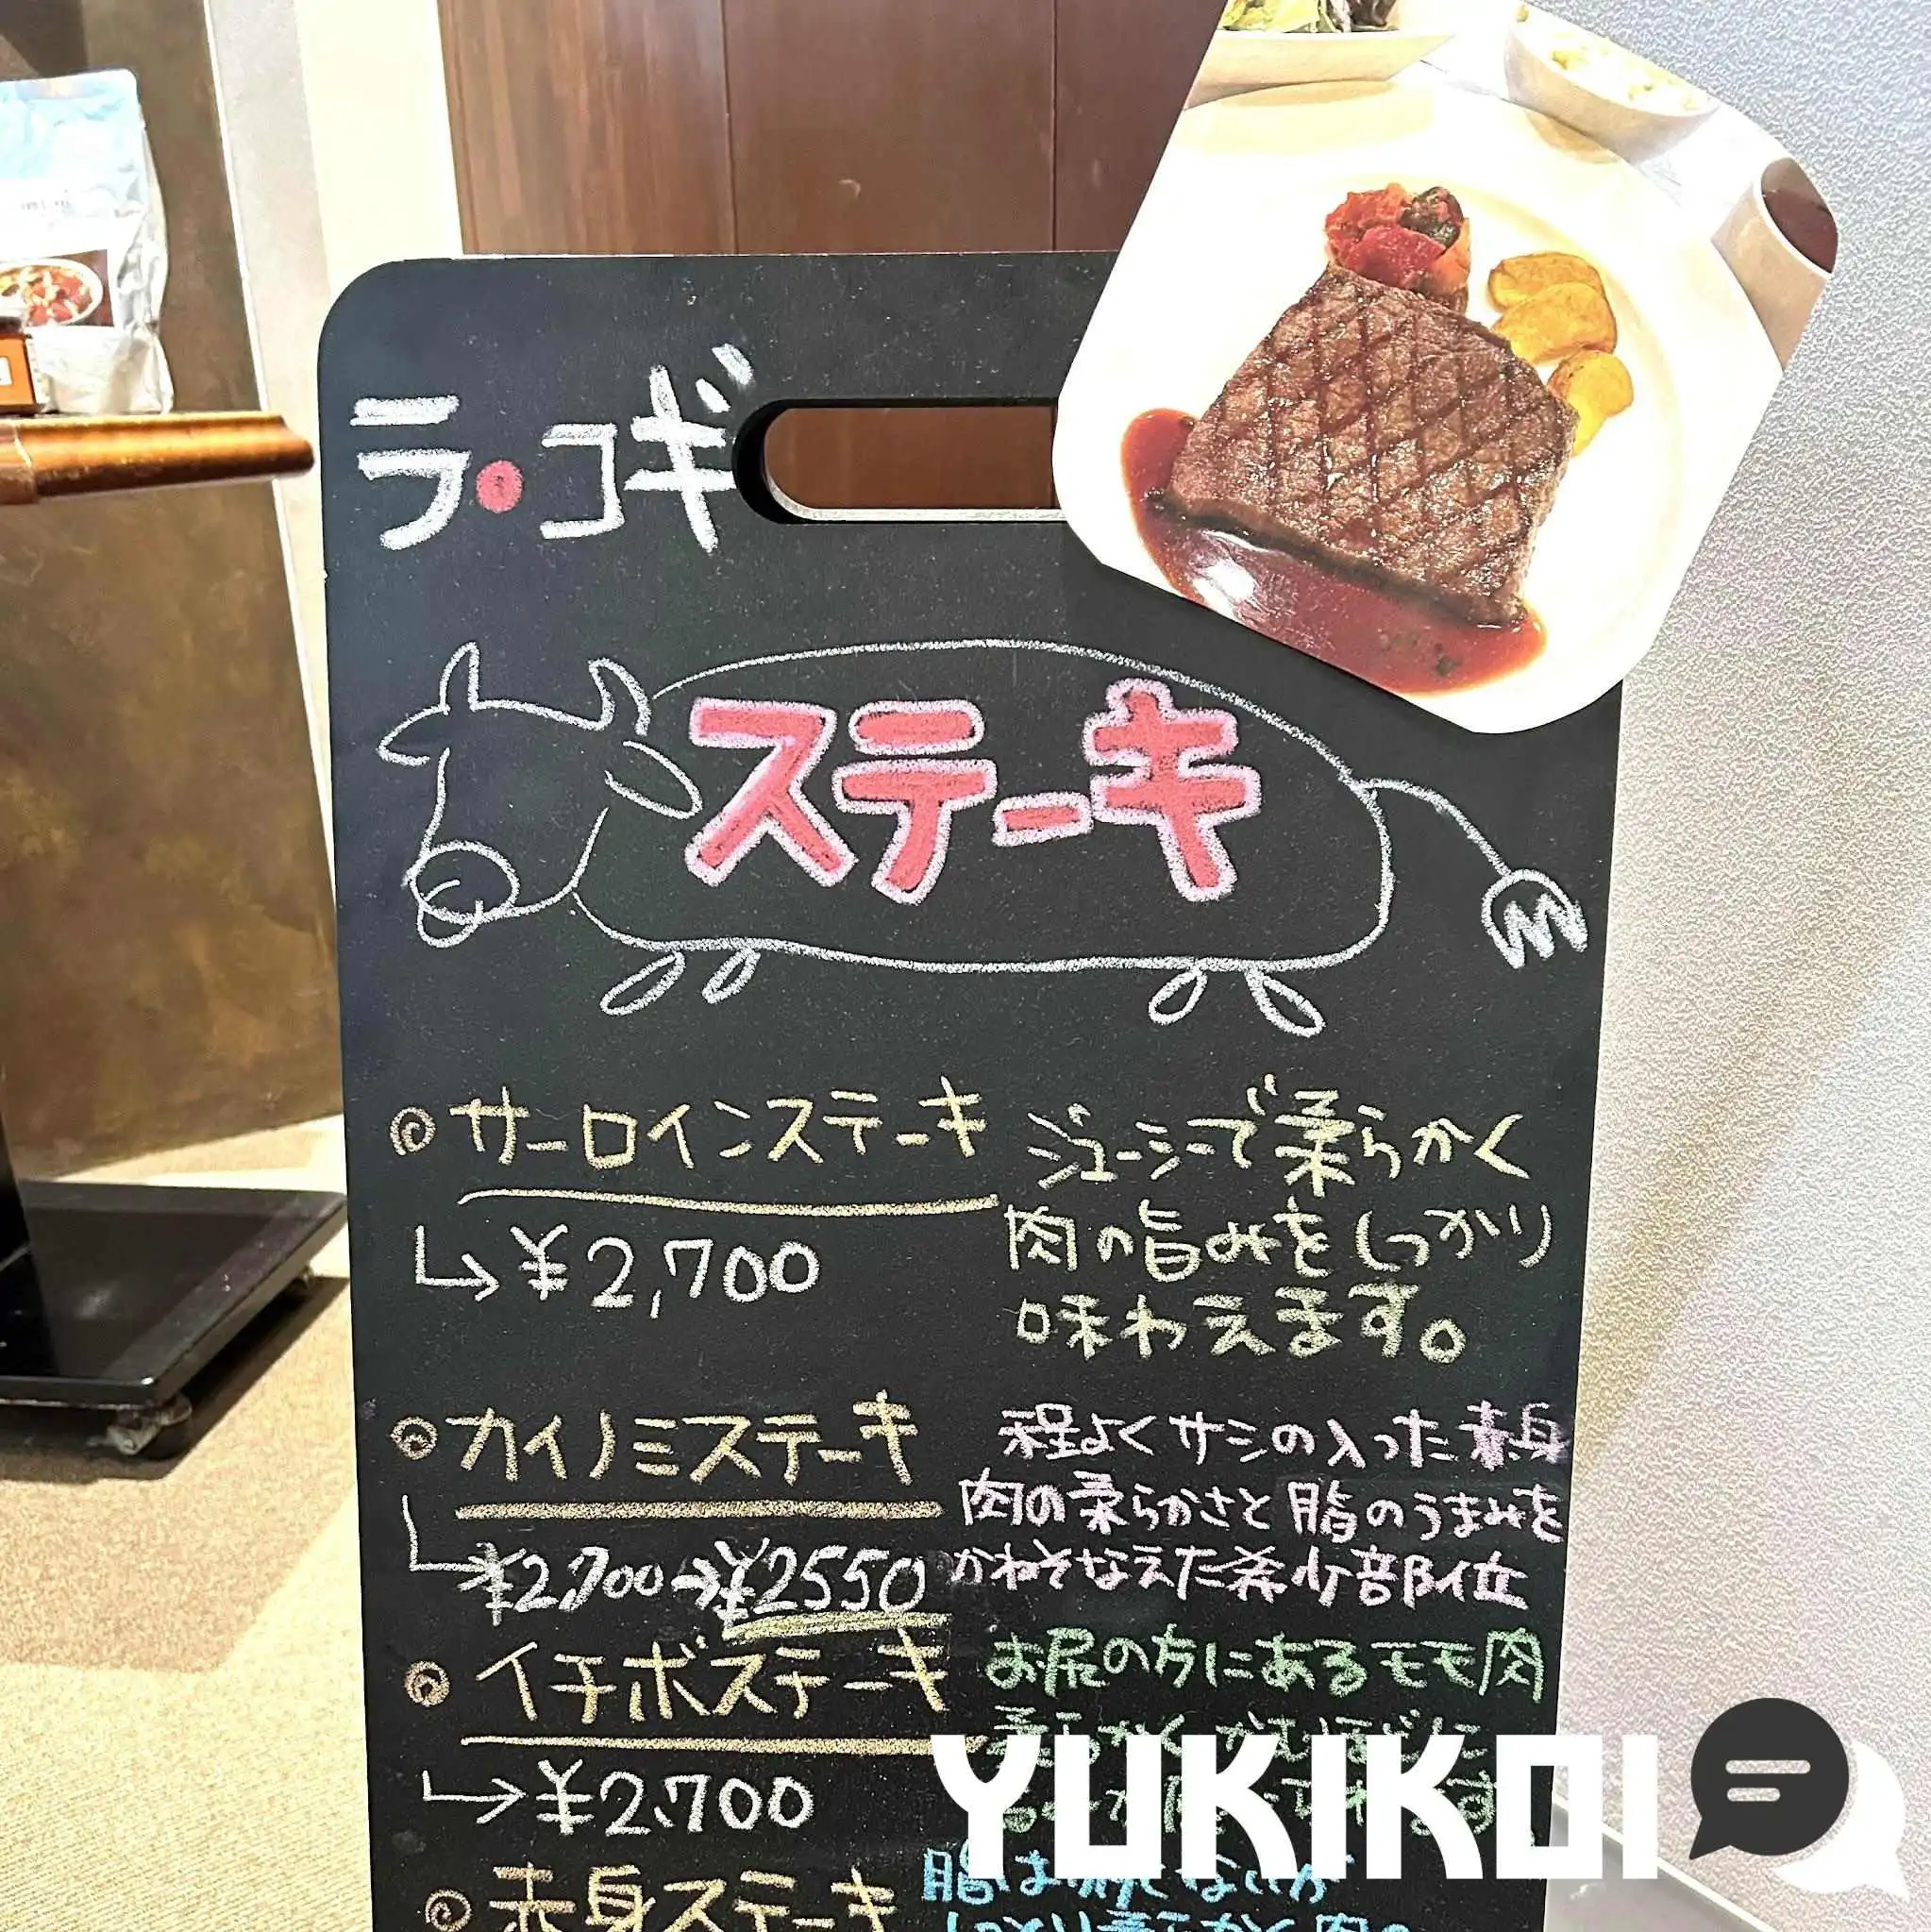 ラ・コギ
ステーキ
◎サーロインステーキ
↳¥2,700
ジューシーで柔らかく
肉の旨みをしっかり
味わえます。
◎カイノミステーキ
¥2,700→¥2550
程よくサシの入った赤身
肉の柔らかさと脂のうまみを
かねそなえた希少部位
◎イチボステーキ
↳¥2,700
お尻の方にあるモモ肉
柔らかく かむほどに
◎赤身ステーキ
脂は
YUKIKOI